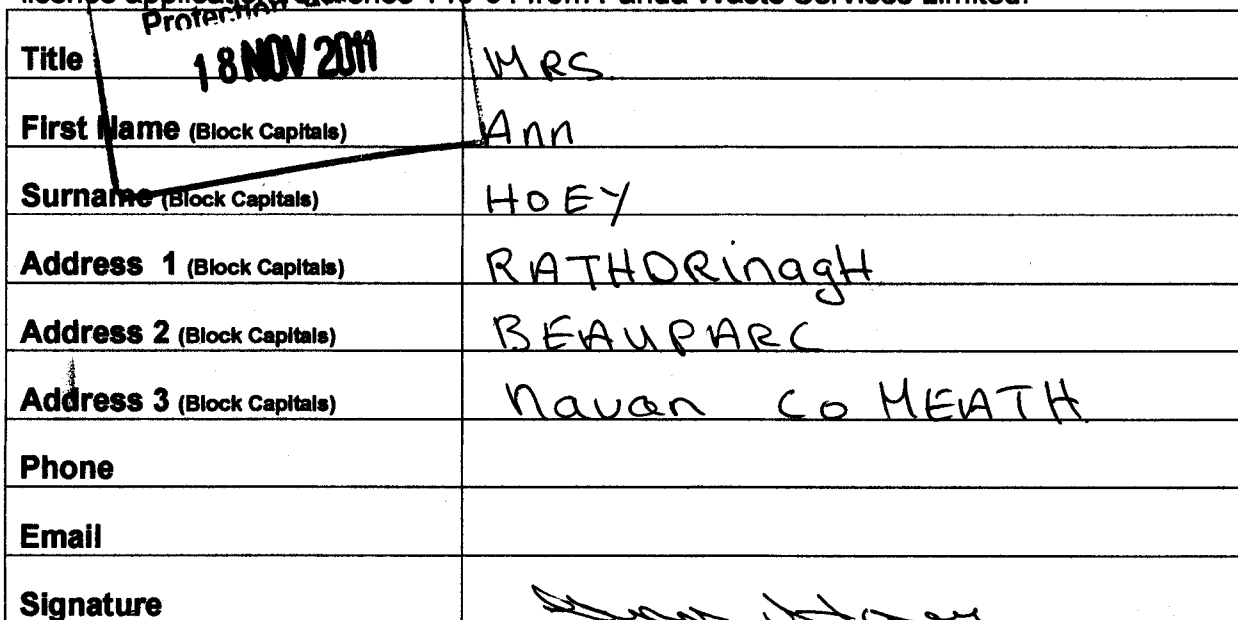 Protection
18 NOV 2011
Title MRS.
First Name (Block Capitals) Ann
Surname (Block Capitals) HOEY
Address 1 (Block Capitals) RATHDRinagH
Address 2 (Block Capitals) BEAUPARC
Address 3 (Block Capitals) Navan Co MEATH
Phone
Email
Signature